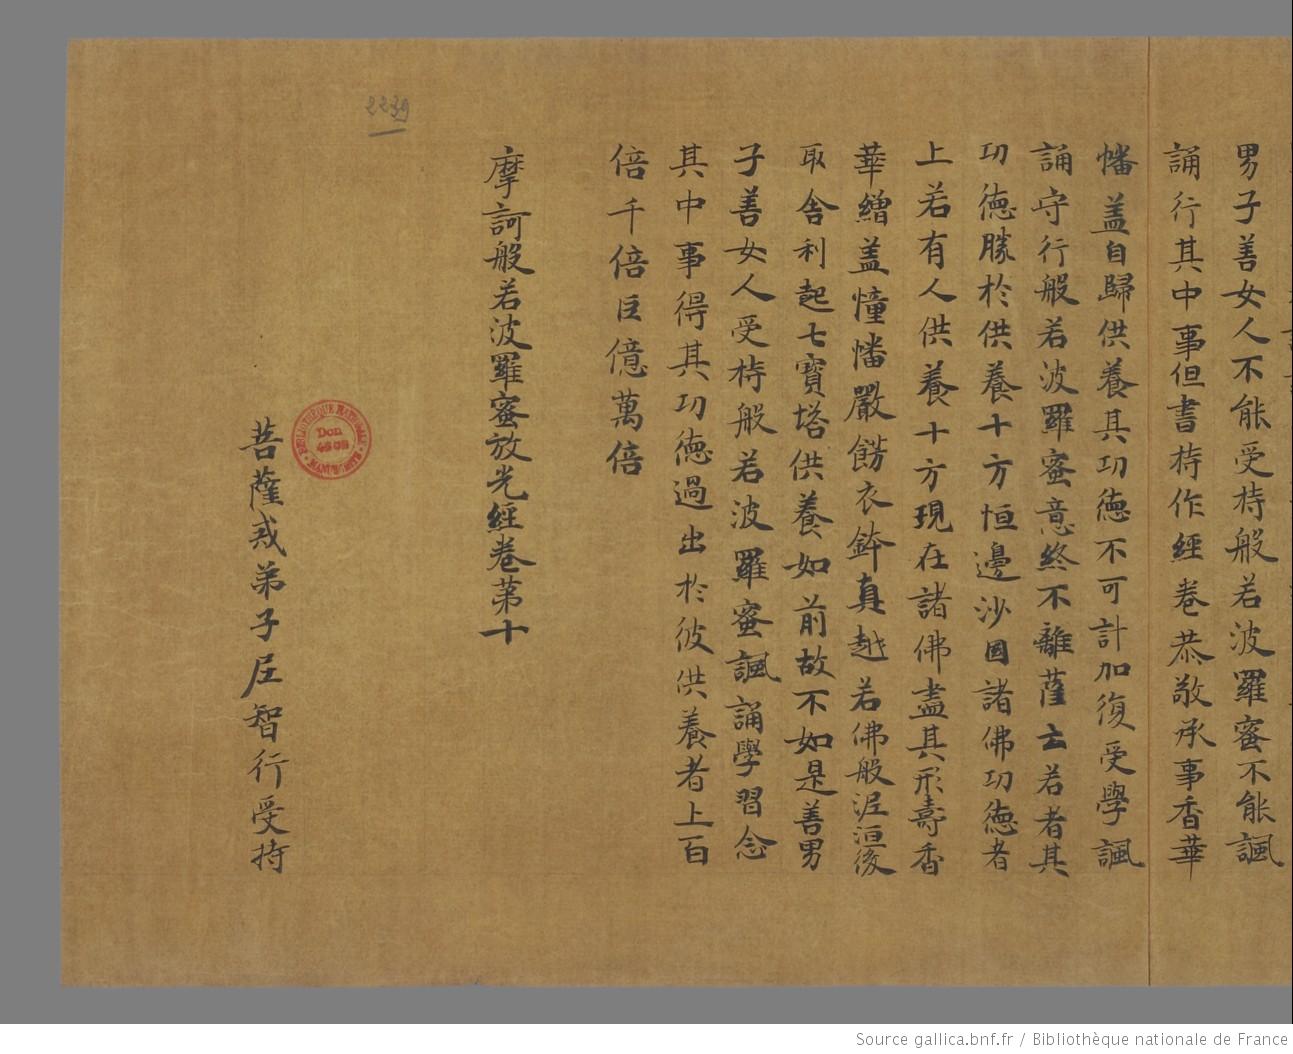 男子善女人不能受持般若波羅蜜不能諷
誦行其中事但書持作經卷恭敬承事香華
幡盖自歸供養其功德不可計加復受學諷
誦守行般若波羅蜜意終不離薩云若者其
功德勝於供養十方恒邊沙國諸佛功德者
上若有人供養十方現在諸佛盡其形壽香
華繒盖幢幡嚴餝衣鉢真越若佛般泥洹後
取舍利起七寶塔供養如前故不如是善男
子善女人受持般若波羅蜜諷誦學習念
其中事得其功德過出於彼供養者上百
倍千倍巨億萬倍
摩訶般若波羅蜜放光經卷苐十
菩薩戒弟子𡉏智行受持
2239
BIBLIOTHÈQUE NATIONALE
Don
Source gallica.bnf.fr / Bibliothèque nationale de France